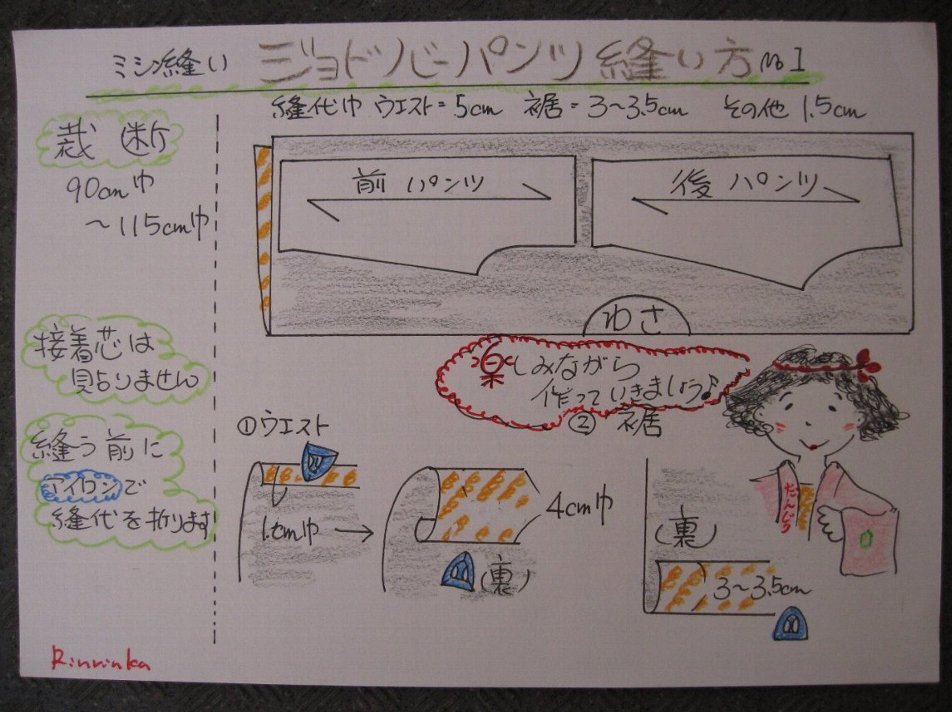 ミシン縫い ジョドパーパンツ縫い方 No1
縫代巾 ウエスト=5cm 裾=3~3.5cm その他 1.5cm
裁断
90cm巾
~115cm巾
前 パンツ
後 パンツ
わさ
接着芯は
貼りません
楽しみながら
作っていきましょう♪
縫う前に
アイロンで
縫代を折ります
①ウエスト
1cm巾
4cm巾
(裏)
② 裾
(裏)
3~3.5cm
だんどり
Rinrinka